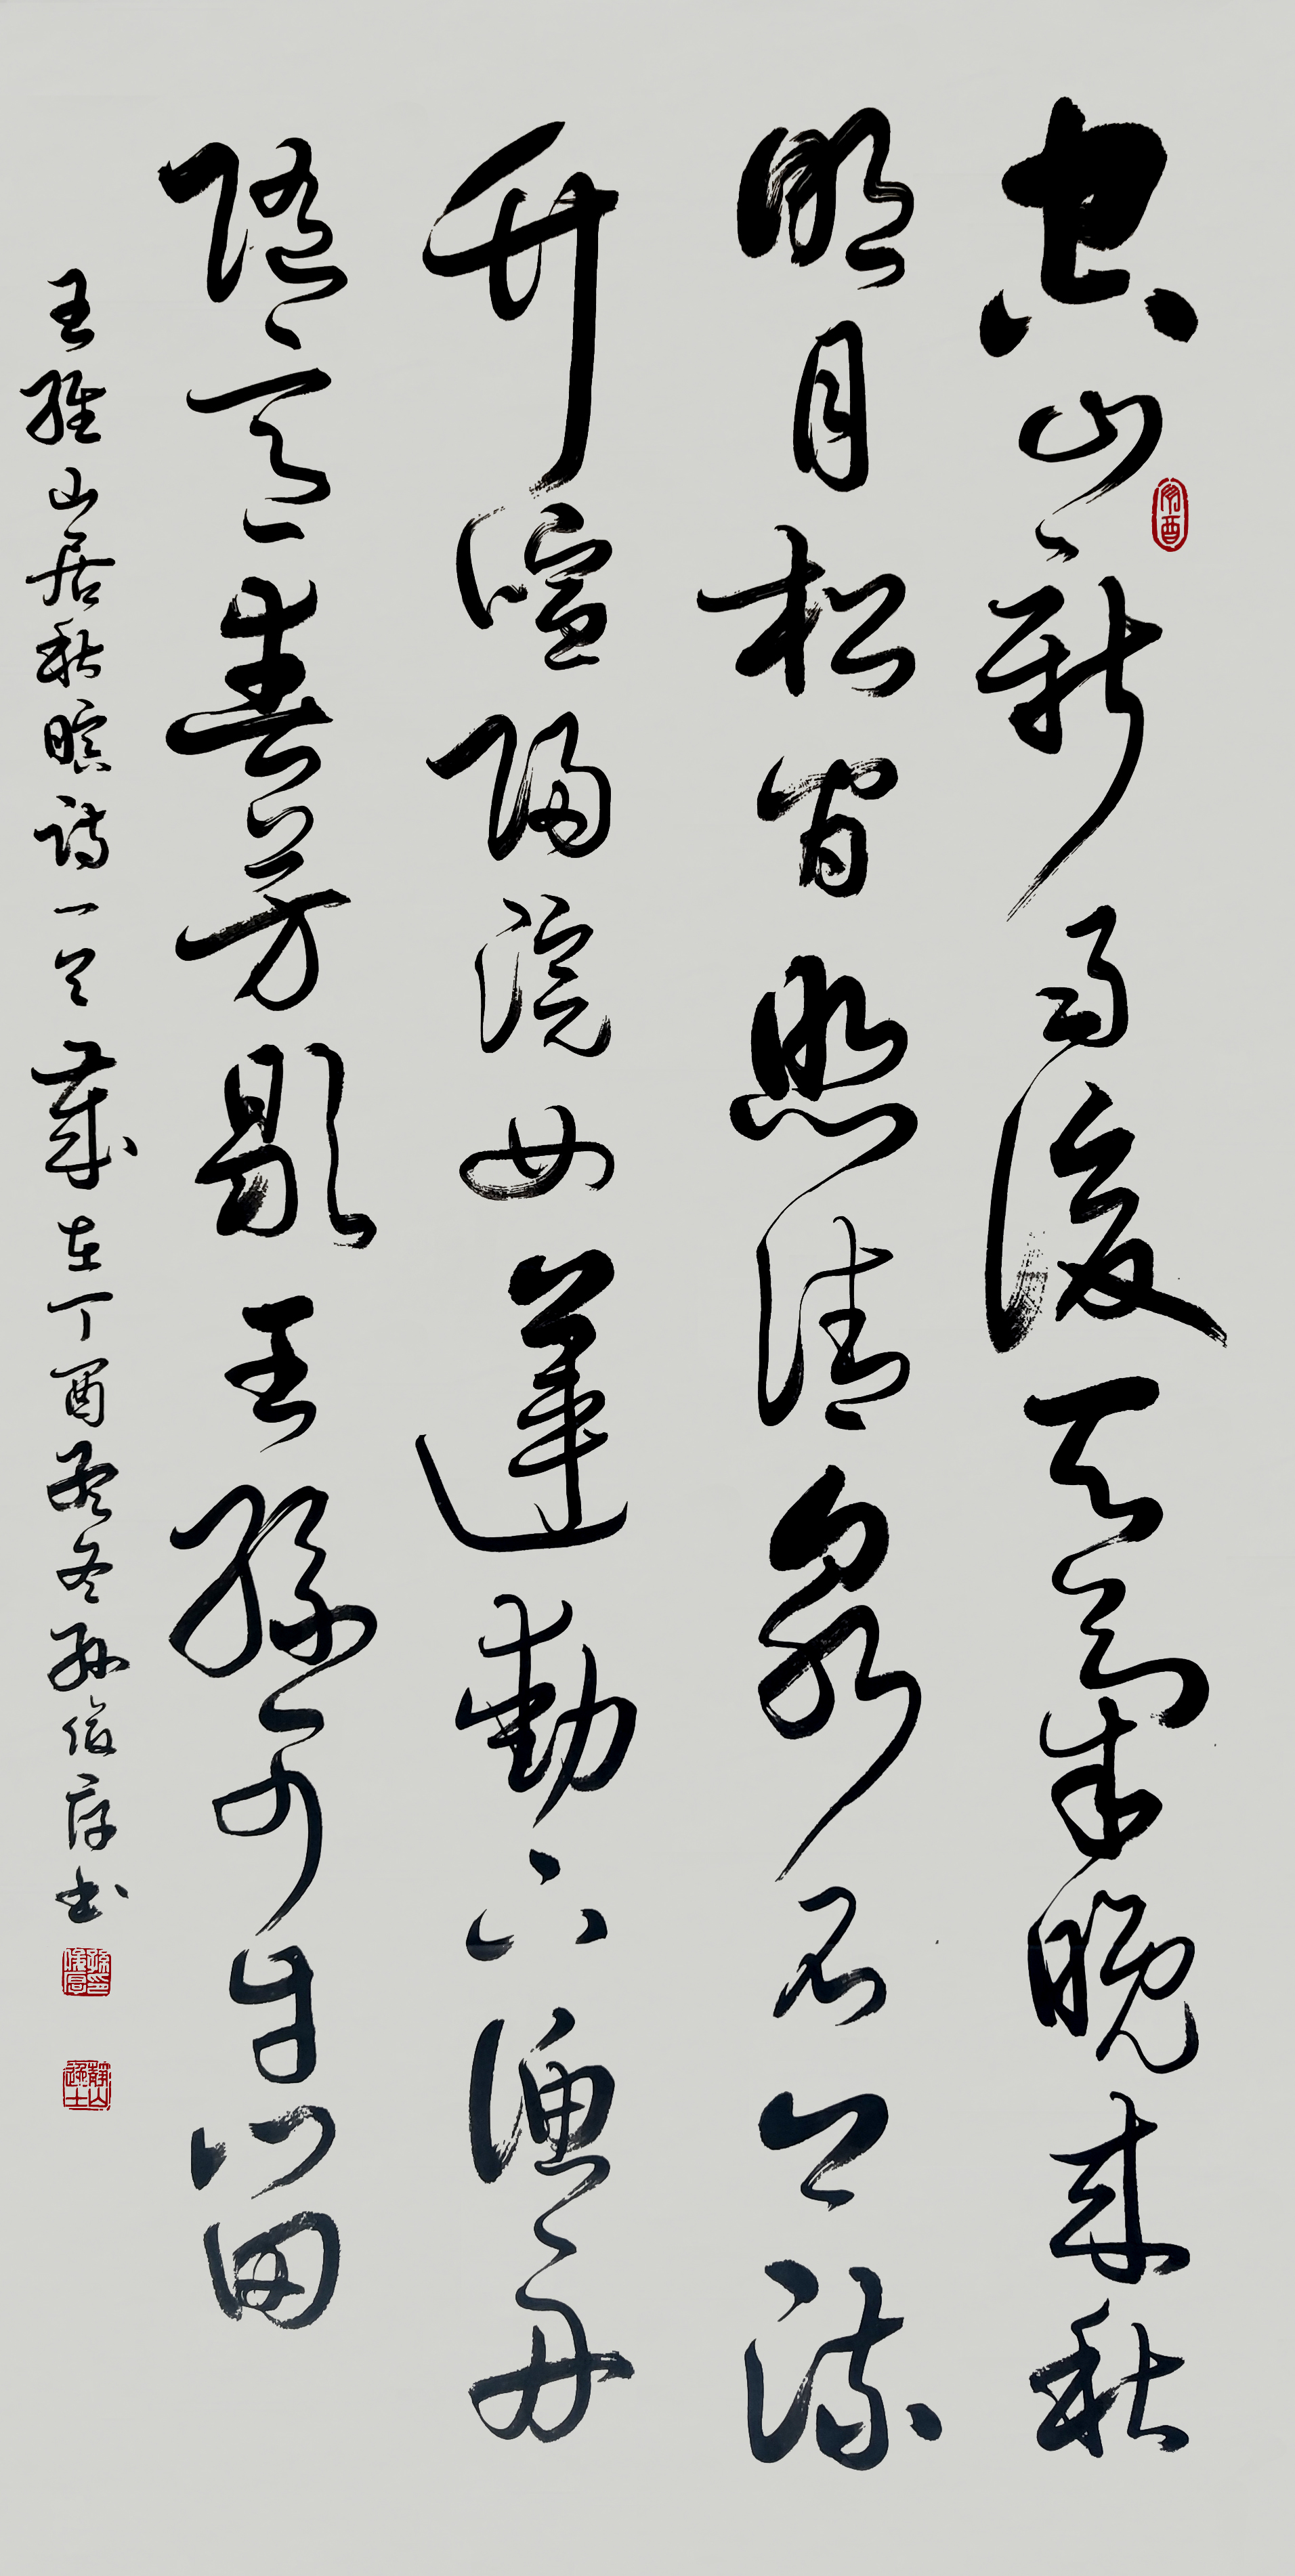 空山新雨後天氣晚來秋
明月松間照清泉石上流
竹喧歸浣女蓮動下漁舟
隨意春芳歇王孫可自留
王維山居秋暝詩一首歲在丁酉孟冬孫俊厚书